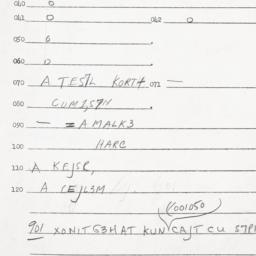 040 0
041 0 042 0
050 0
060 0
070 A TESL KORT# 071 —
080 CUM2,S7N
090 — = A MALK3
100 HARC
110 A KEJSR,
120 A (EJL3M
(001050)
901 XONIT G3HAT KUN CAJT CU S7P